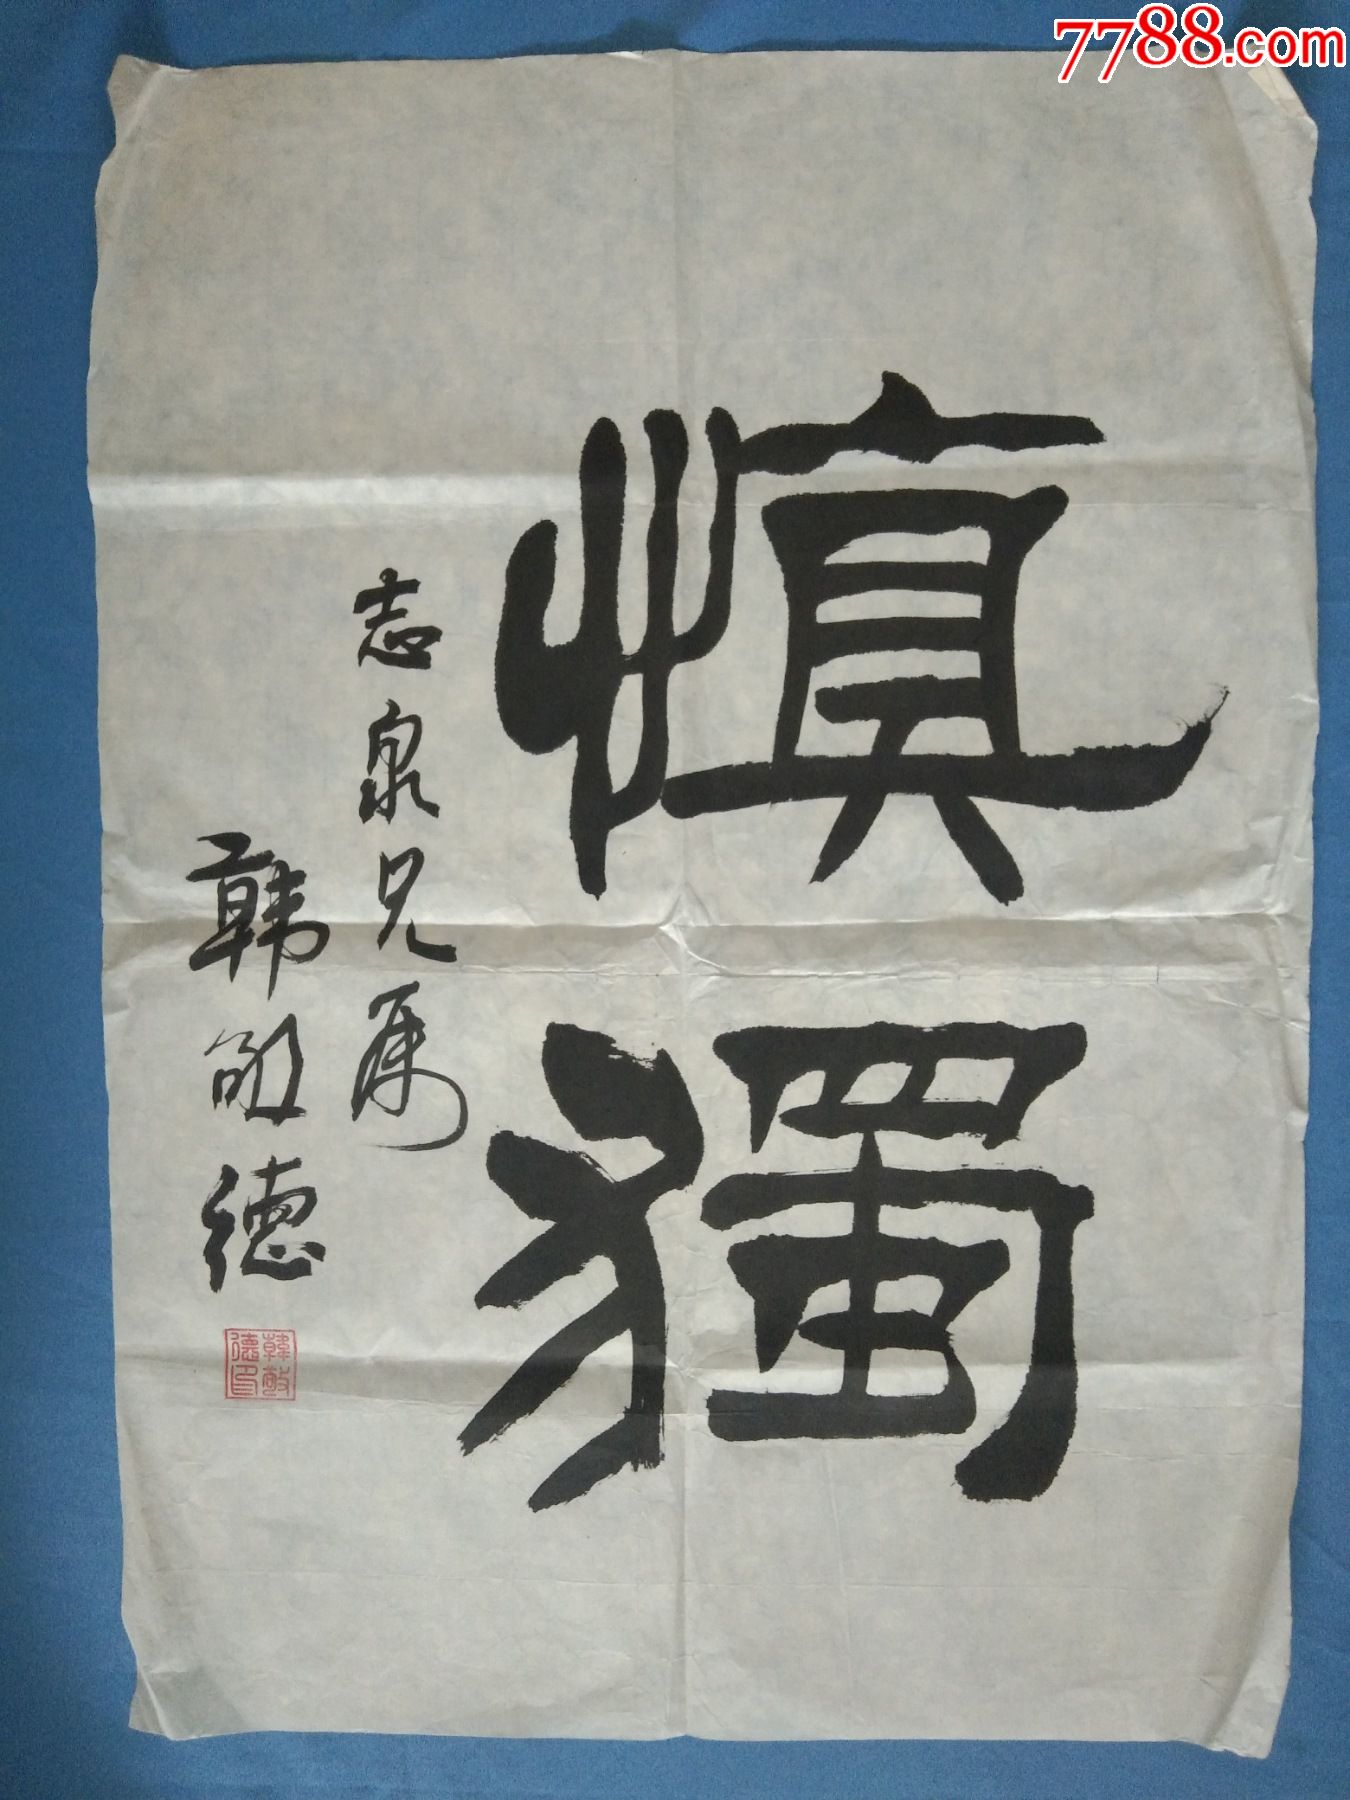 7788.com
慎獨
志泉兄属
韩敬德
韓敬
德印